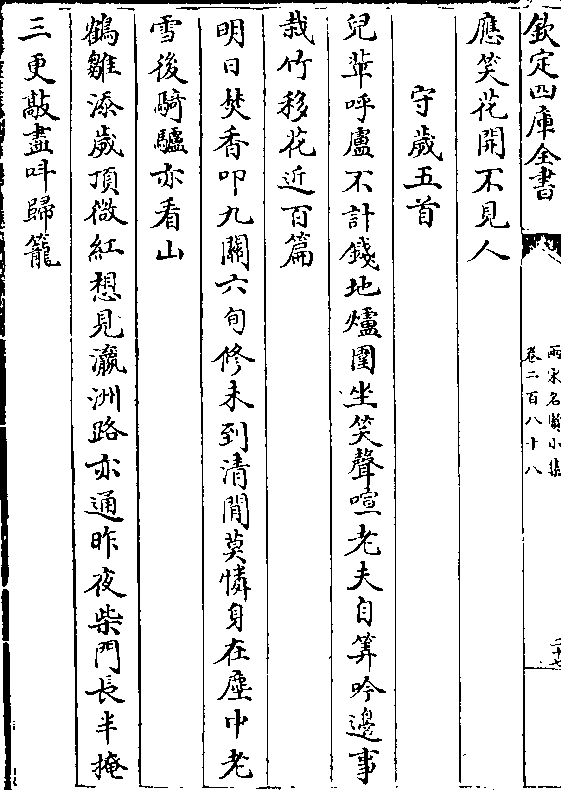 欽定四庫全書
兩宋名賢小集
卷二百八十八
應笑花開不見人
守歲五首
兒輩呼盧不計錢地爐圍坐笑聲喧老夫自筭吟邊事
栽竹移花近百篇
明日焚香叩九關六旬修未到清閒莫憐身在塵中老
雪後騎驢亦看山
鶴雛添歲頂微紅想見瀛洲路亦通昨夜柴門長半掩
三更敲盡呌歸籠